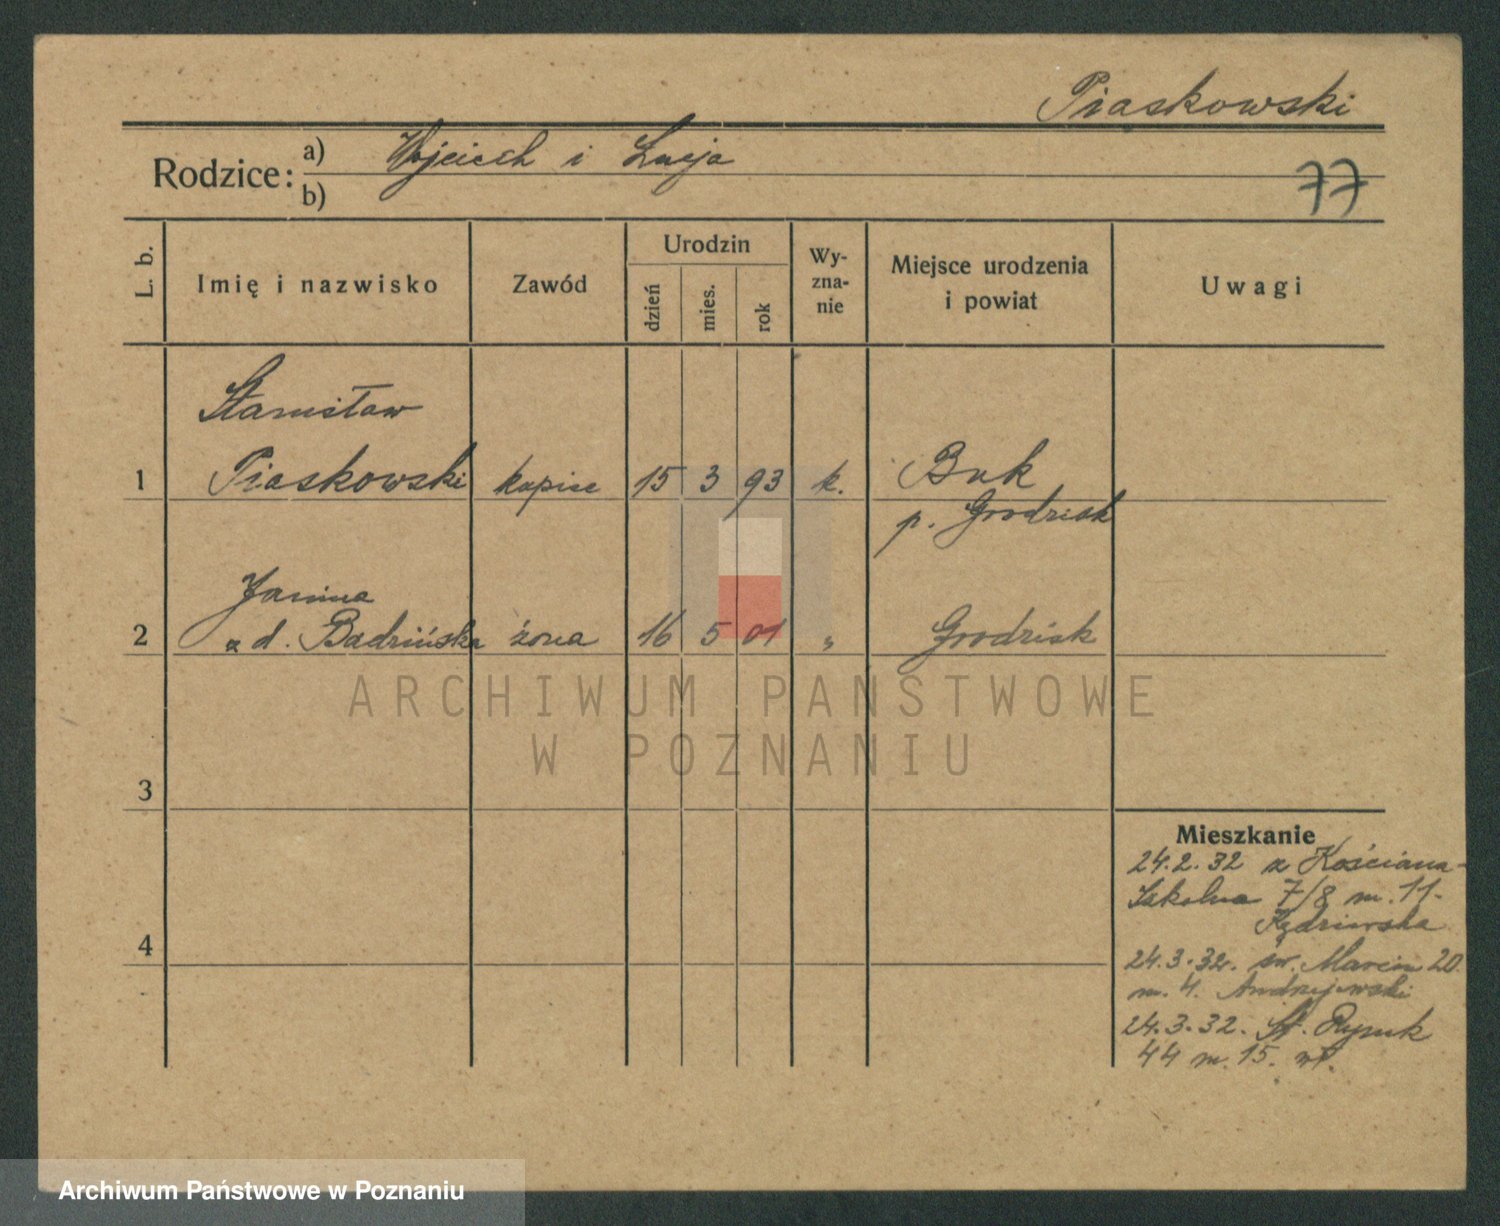 Piaskowski
Rodzice: a) Wojciech i Łucja
b)
77
L. b.
Imię i nazwisko
Zawód
Urodzin
dzień
mies.
rok
Wy-
zna-
nie
Miejsce urodzenia
i powiat
Uwagi
Stanisław
1 Piaskowski kupiec 15 3 93 k. Buk
p. Grodzisk
Janina
2 z d. Badzińska żona 16 5 01 " Grodzisk
3
4
Mieszkanie
24.2.32 z Kościana-
Szkolna 7/8 m. 11.
Kędzierska
24.3.32. św. Marcin 20
m. 4. Andrzejewski
24.3.32. St. Rynek
44 m. 15. wł.
ARCHIWUM PAŃSTWOWE
W POZNANIU
Archiwum Państwowe w Poznaniu